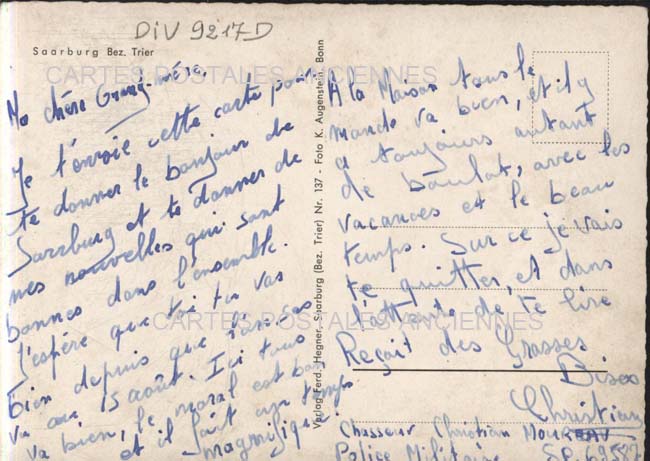 DIV 9217D
Saarburg Bez. Trier
CARTES POSTALES ANCIENNES
Ma chère Grand-mère,
Je t'envoie cette carte pour
te donner le bonjour de
Sarrburg et te donner de
mes nouvelles qui sont
bonnes dans l'ensemble.
J'espère que toi tu vas
bien depuis que j'ai
vu au 15 août. Ici tous
va bien, le moral est bon
et il fait un temps
magnifique.
Verlag Ferd. Hegner, Saarburg (Bez. Trier) Nr. 137 - Foto K. Augenstein, Bonn
A la Maison tous le
monde va bien, et il y
a toujours autant
de boulot, avec les
vacances et le beau
temps. Sur ce je vais
te quitter, et dans
l'attente de te lire
Reçoit des Grosses
Bises
Christian
CARTES POSTALES ANCIENNES
Chasseur Christian
Police Militaire S.P. 69